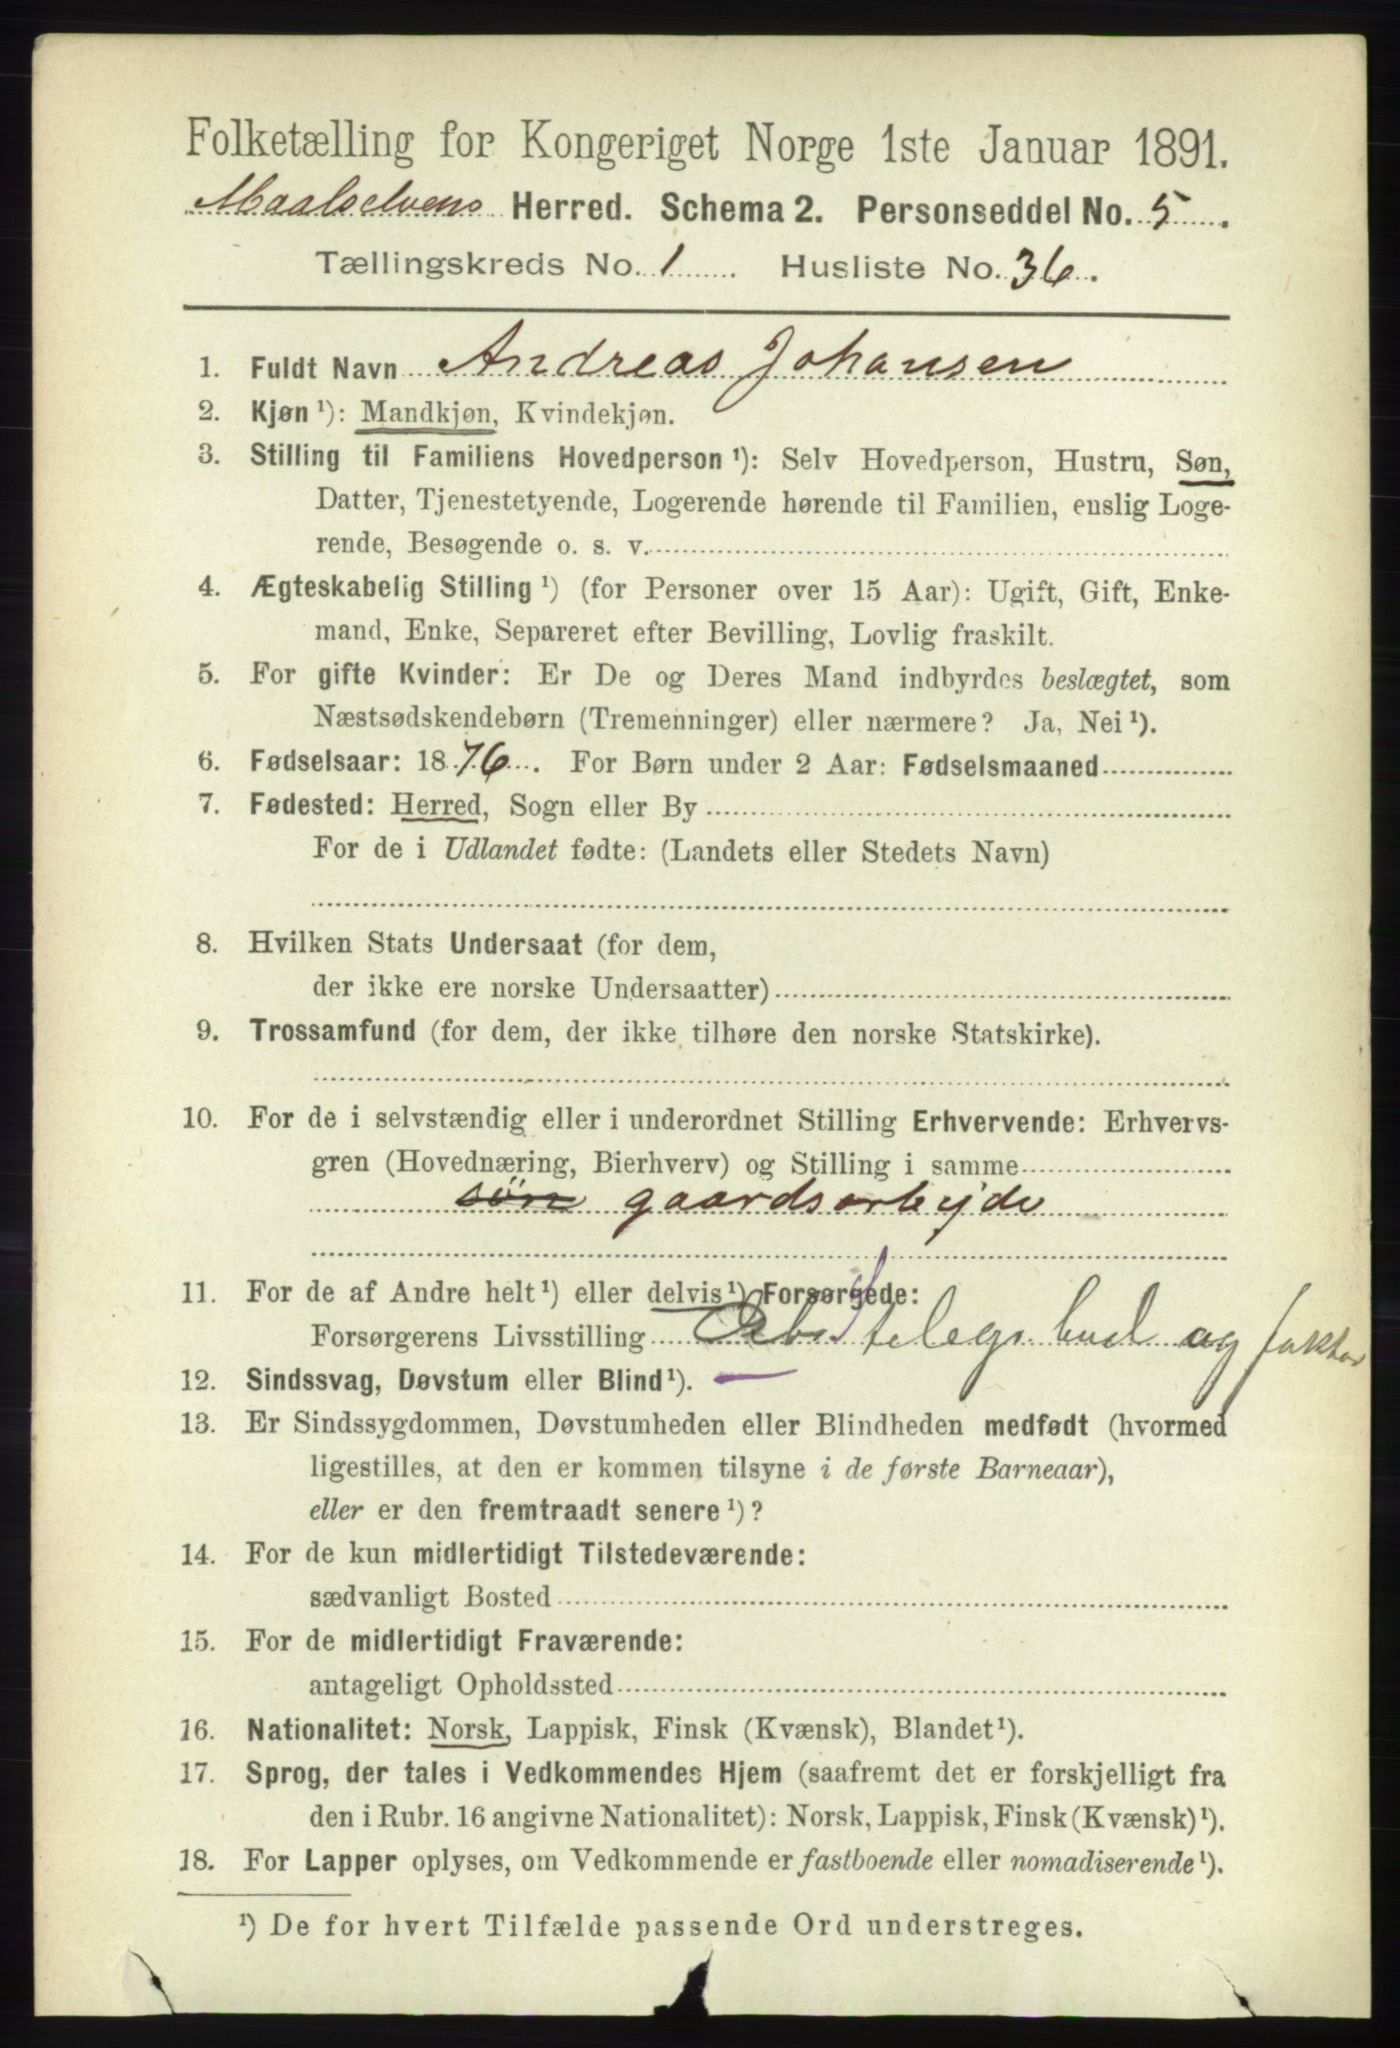 Folketælling for Kongeriget Norge 1ste Januar 1891.
Maalselvens Herred. Schema 2. Personseddel No. 5.
Tællingskreds No. 1 Husliste No. 36.
1. Fuldt Navn Andreas Johansen
2. Kjøn ¹): Mandkjøn, Kvindekjøn.
3. Stilling til Familiens Hovedperson ¹): Selv Hovedperson, Hustru, Søn,
Datter, Tjenestetyende, Logerende hørende til Familien, enslig Loge-
rende, Besøgende o. s. v.
4. Ægteskabelig Stilling ¹) (for Personer over 15 Aar): Ugift, Gift, Enke-
mand, Enke, Separeret efter Bevilling, Lovlig fraskilt.
5. For gifte Kvinder: Er De og Deres Mand indbyrdes beslægtet, som
Næstsødskendebørn (Tremenninger) eller nærmere? Ja, Nei ¹).
6. Fødselsaar: 1876. For Børn under 2 Aar: Fødselsmaaned
7. Fødested: Herred, Sogn eller By
For de i Udlandet fødte: (Landets eller Stedets Navn)
8. Hvilken Stats Undersaat (for dem,
der ikke ere norske Undersaatter)
9. Trossamfund (for dem, der ikke tilhøre den norske Statskirke).
10. For de i selvstændig eller i underordnet Stilling Erhvervende: Erhvervs-
gren (Hovednæring, Bierhverv) og Stilling i samme
søn gaardsarbejde
11. For de af Andre helt ¹) eller delvis ¹) Forsørgede:
Forsørgerens Livsstilling telegr. bud og
12. Sindssvag, Døvstum eller Blind ¹). —
13. Er Sindssygdommen, Døvstumheden eller Blindheden medfødt (hvormed
ligestilles, at den er kommen tilsyne i de første Barneaar),
eller er den fremtraadt senere ¹)?
14. For de kun midlertidigt Tilstedeværende:
sædvanligt Bosted
15. For de midlertidigt Fraværende:
antageligt Opholdssted
16. Nationalitet: Norsk, Lappisk, Finsk (Kvænsk), Blandet ¹).
17. Sprog, der tales i Vedkommendes Hjem (saafremt det er forskjelligt fra
den i Rubr. 16 angivne Nationalitet): Norsk, Lappisk, Finsk (Kvænsk) ¹).
18. For Lapper oplyses, om Vedkommende er fastboende eller nomadiserende ¹).
¹) De for hvert Tilfælde passende Ord understreges.